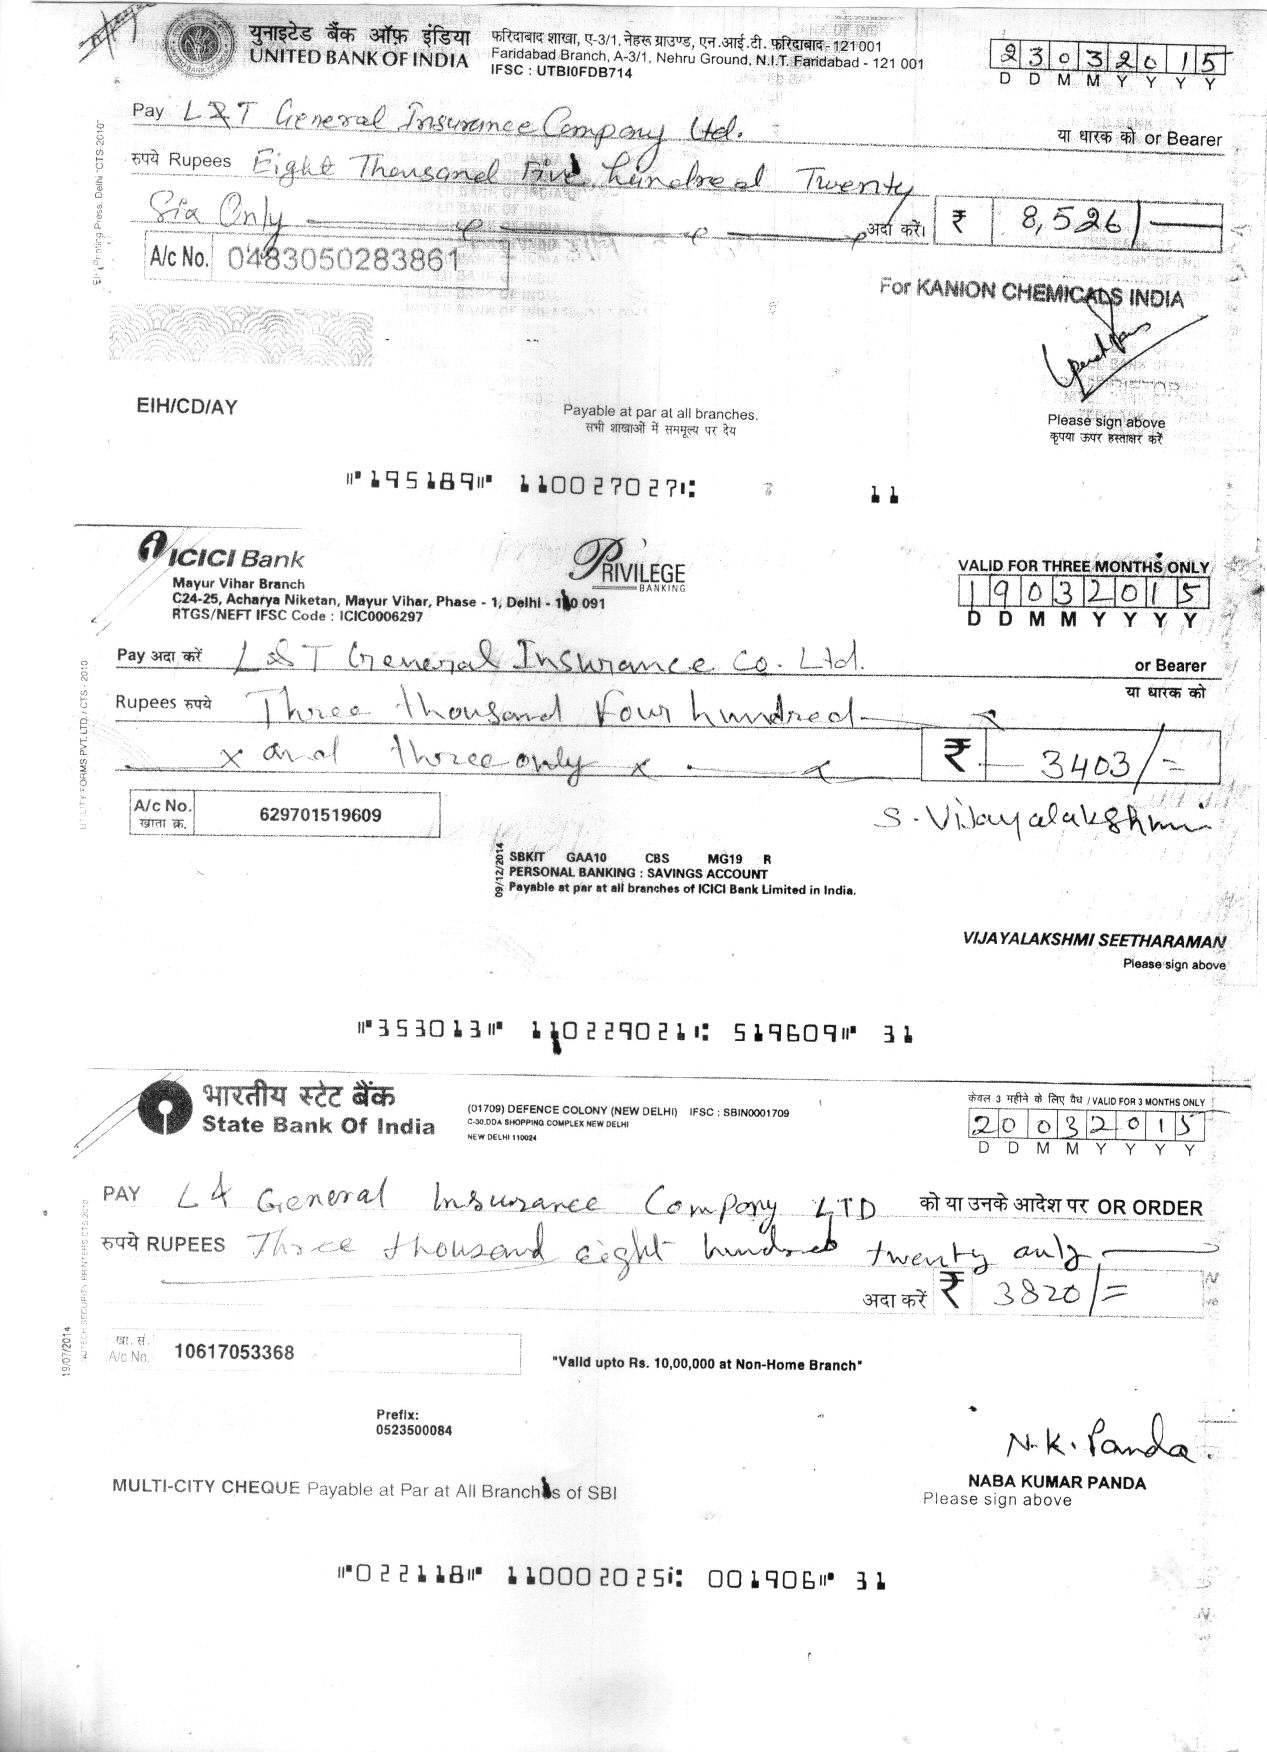 युनाइटेड बैंक ऑफ़ इंडिया
UNITED BANK OF INDIA
फरिदाबाद शाखा, ए-3/1, नेहरू ग्राउण्ड, एन.आई.टी. फ़रिदाबाद - 121 001
Faridabad Branch, A-3/1, Nehru Ground, N.I.T. Faridabad - 121 001
IFSC : UTBI0FDB714
23032015
D D M M Y Y Y Y
Pay L&T General Insurance Company Ltd.
या धारक को or Bearer
रुपये Rupees Eight Thousand Five hundred Twenty
Six Only
अदा करें। ₹ 8,526/
A/c No. 0483050283861
Printing Press, Delhi "CTS-2010"
For KANION CHEMICALS INDIA
EIH/CD/AY
Payable at par at all branches.
सभी शाखाओं में सममूल्य पर देय
Please sign above
कृपया ऊपर हस्ताक्षर करें
⑈195189⑈ 110027027⑆ 11
ICICI Bank
PRIVILEGE
BANKING
Mayur Vihar Branch
C24-25, Acharya Niketan, Mayur Vihar, Phase - 1, Delhi - 110 091
RTGS/NEFT IFSC Code : ICIC0006297
VALID FOR THREE MONTHS ONLY
19032015
D D M M Y Y Y Y
Pay अदा करें L&T General Insurance Co. Ltd.
or Bearer
या धारक को
Rupees रुपये Three thousand Four hundred
x and three only x
₹ 3403/=
A/c No.
खाता क्र.
629701519609
UTILITY FORMS PVT. LTD. / CTS - 2010
S. Vijayalakshmi
09/12/2014
SBKIT GAA10 CBS MG19 R
PERSONAL BANKING : SAVINGS ACCOUNT
Payable at par at all branches of ICICI Bank Limited in India.
VIJAYALAKSHMI SEETHARAMAN
Please sign above
⑈353013⑈ 110229021⑆ 519609⑈ 31
भारतीय स्टेट बैंक
State Bank Of India
(01709) DEFENCE COLONY (NEW DELHI) IFSC : SBIN0001709
C-30,DDA SHOPPING COMPLEX NEW DELHI
NEW DELHI 110024
केवल 3 महीने के लिए वैध / VALID FOR 3 MONTHS ONLY
20032015
D D M M Y Y Y Y
PAY L& General Insurance Company LTD
को या उनके आदेश पर OR ORDER
रुपये RUPEES Three thousand eight hundred twenty only
अदा करें ₹ 3820/=
19/07/2014
खा. सं.
A/c No.
10617053368
"Valid upto Rs. 10,00,000 at Non-Home Branch"
Prefix:
0523500084
N.K. Panda
NABA KUMAR PANDA
Please sign above
MULTI-CITY CHEQUE Payable at Par at All Branches of SBI
⑈022118⑈ 110002025⑆ 001906⑈ 31